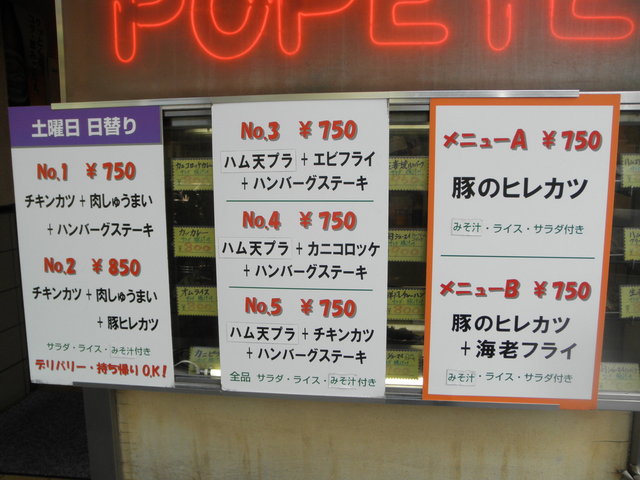 POPEYE
土曜日 日替り
No.1 ￥750
チキンカツ + 肉しゅうまい
+ ハンバーグステーキ
No.2 ￥850
チキンカツ + 肉しゅうまい
+ 豚ヒレカツ
サラダ・ライス・みそ汁付き
デリバリー・持ち帰りO.K!
No.3 ￥750
ハム天プラ + エビフライ
+ ハンバーグステーキ
No.4 ￥750
ハム天プラ + カニコロッケ
+ ハンバーグステーキ
No.5 ￥750
ハム天プラ + チキンカツ
+ ハンバーグステーキ
全品 サラダ・ライス・みそ汁付き
メニューA ￥750
豚のヒレカツ
みそ汁・ライス・サラダ付き
メニューB ￥750
豚のヒレカツ
+ 海老フライ
みそ汁・ライス・サラダ付き
カニコロッケカレー
カツカレー
オムライス